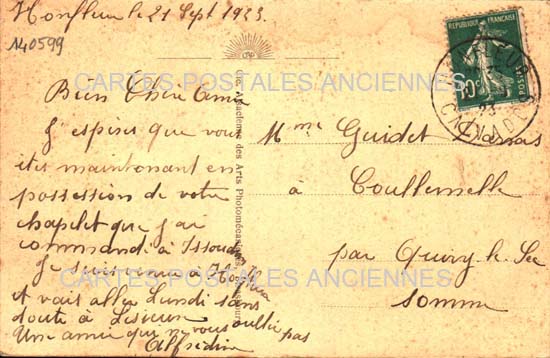 Honfleur le 21 Sept 1923.
140599
REPUBLIQUE FRANÇAISE
POSTES
CALVADOS
CARTES POSTALES ANCIENNES
Bien Chère Amie
J'espère que vous
êtes maintenant en
possession de votre
chaplet que j'ai
commandé à Issoudun
Je suis venue à Honfleur
et vais aller Lundi sans
doute à Lisieux
Une amie qui ne vous oublie pas
Alfrédine
Mme Guidet
à Coullemelle
par Quiry-le-Sec
Somme
CARTES POSTALES ANCIENNES
des Arts Photomécaniques